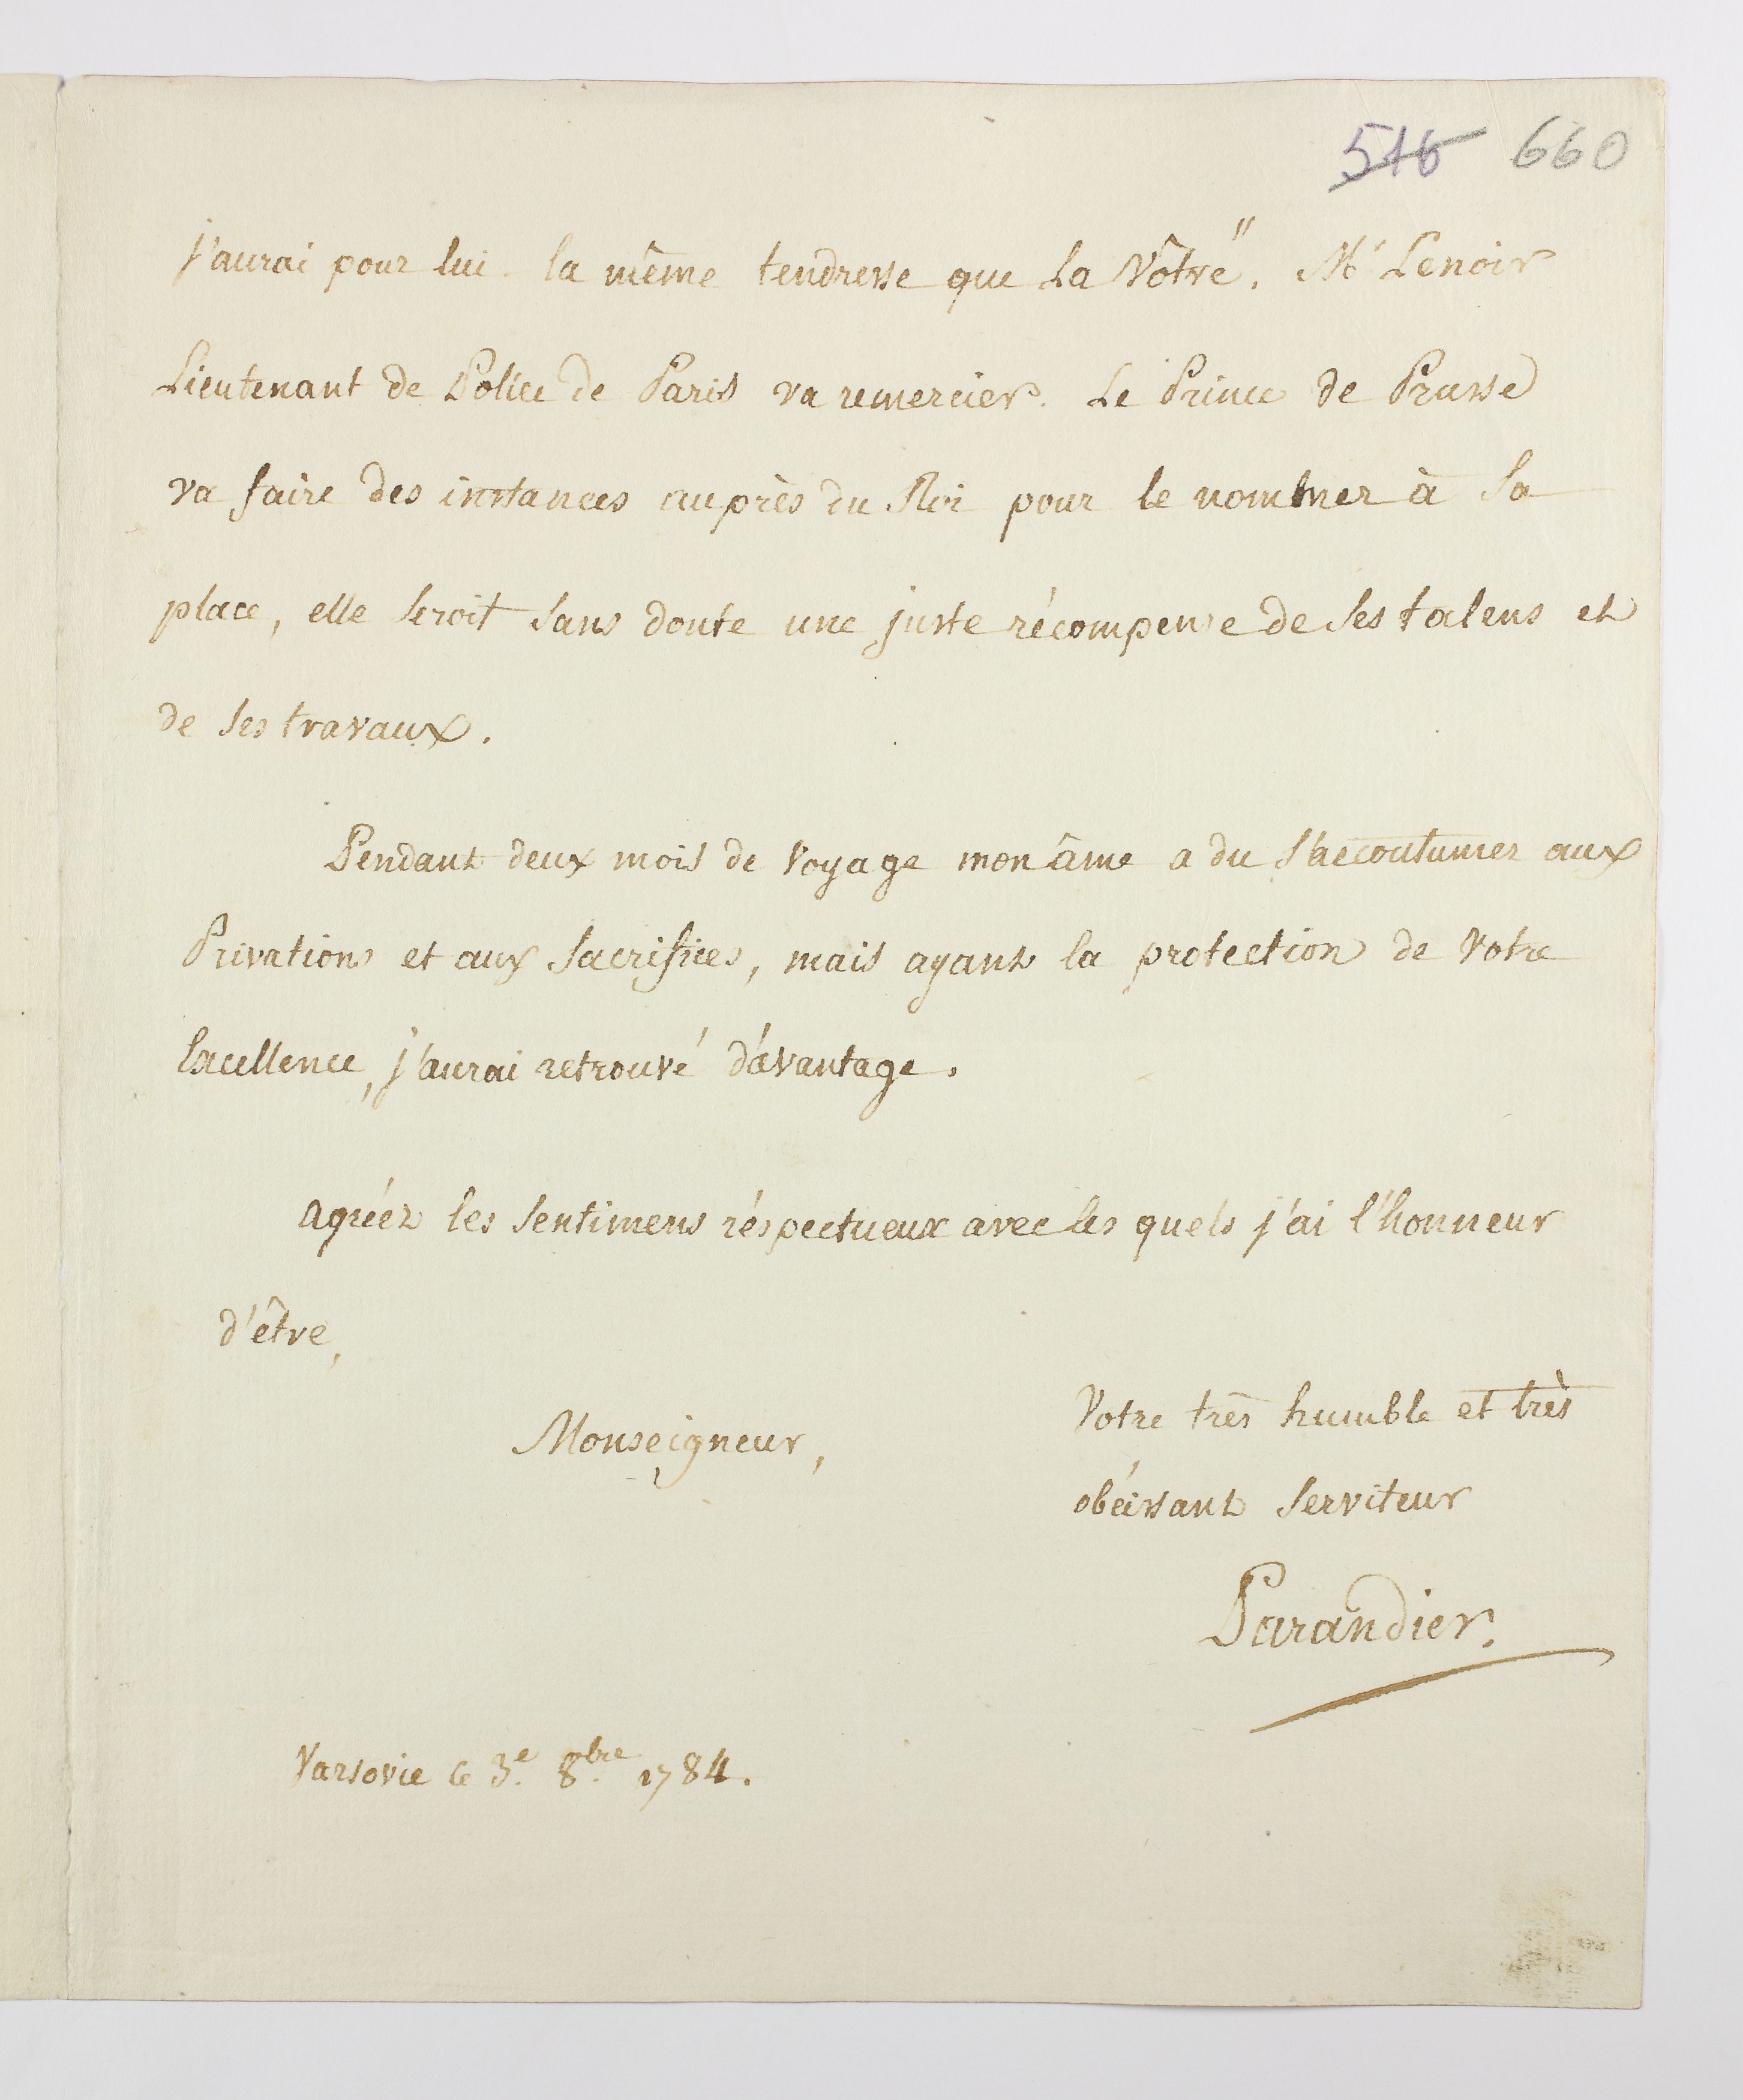 516 660
j'aurai pour lui la même tendresse que la Vôtre". Mr Lenoir
Lieutenant de Police de Paris va remercier. Le Prince de Prusse
va faire des instances auprès du Roi pour le nommer à Sa
place, elle seroit sans doute une juste récompense de ses talens et
de ses travaux.
Pendant deux mois de Voyage mon âme a du s'accoutumer aux
Privations et aux Sacrifices, mais ayant la protection de Votre
Excellence, j'aurai retrouvé d'avantage.
agréez les Sentimens réspectueux avec les quels j'ai l'honneur
d'être,
Monseigneur,
Votre très humble et très
obéissant Serviteur
Parandier.
Varsovie ce 3e. 8bre. 1784.